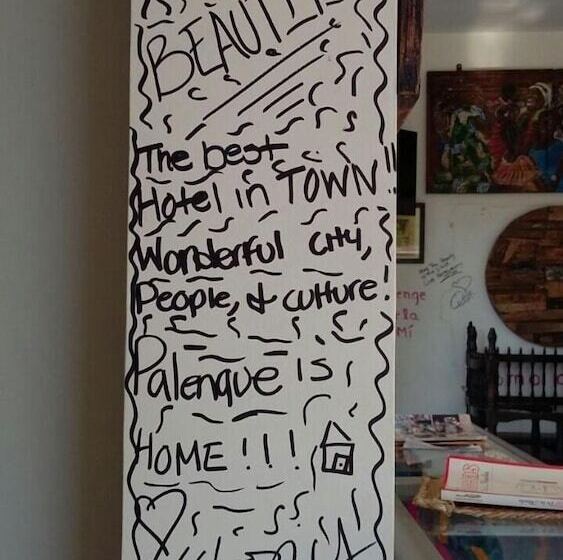 The best
Hotel in TOWN!!
Wonderful city,
People, & culture!
Palenque is
HOME!!!